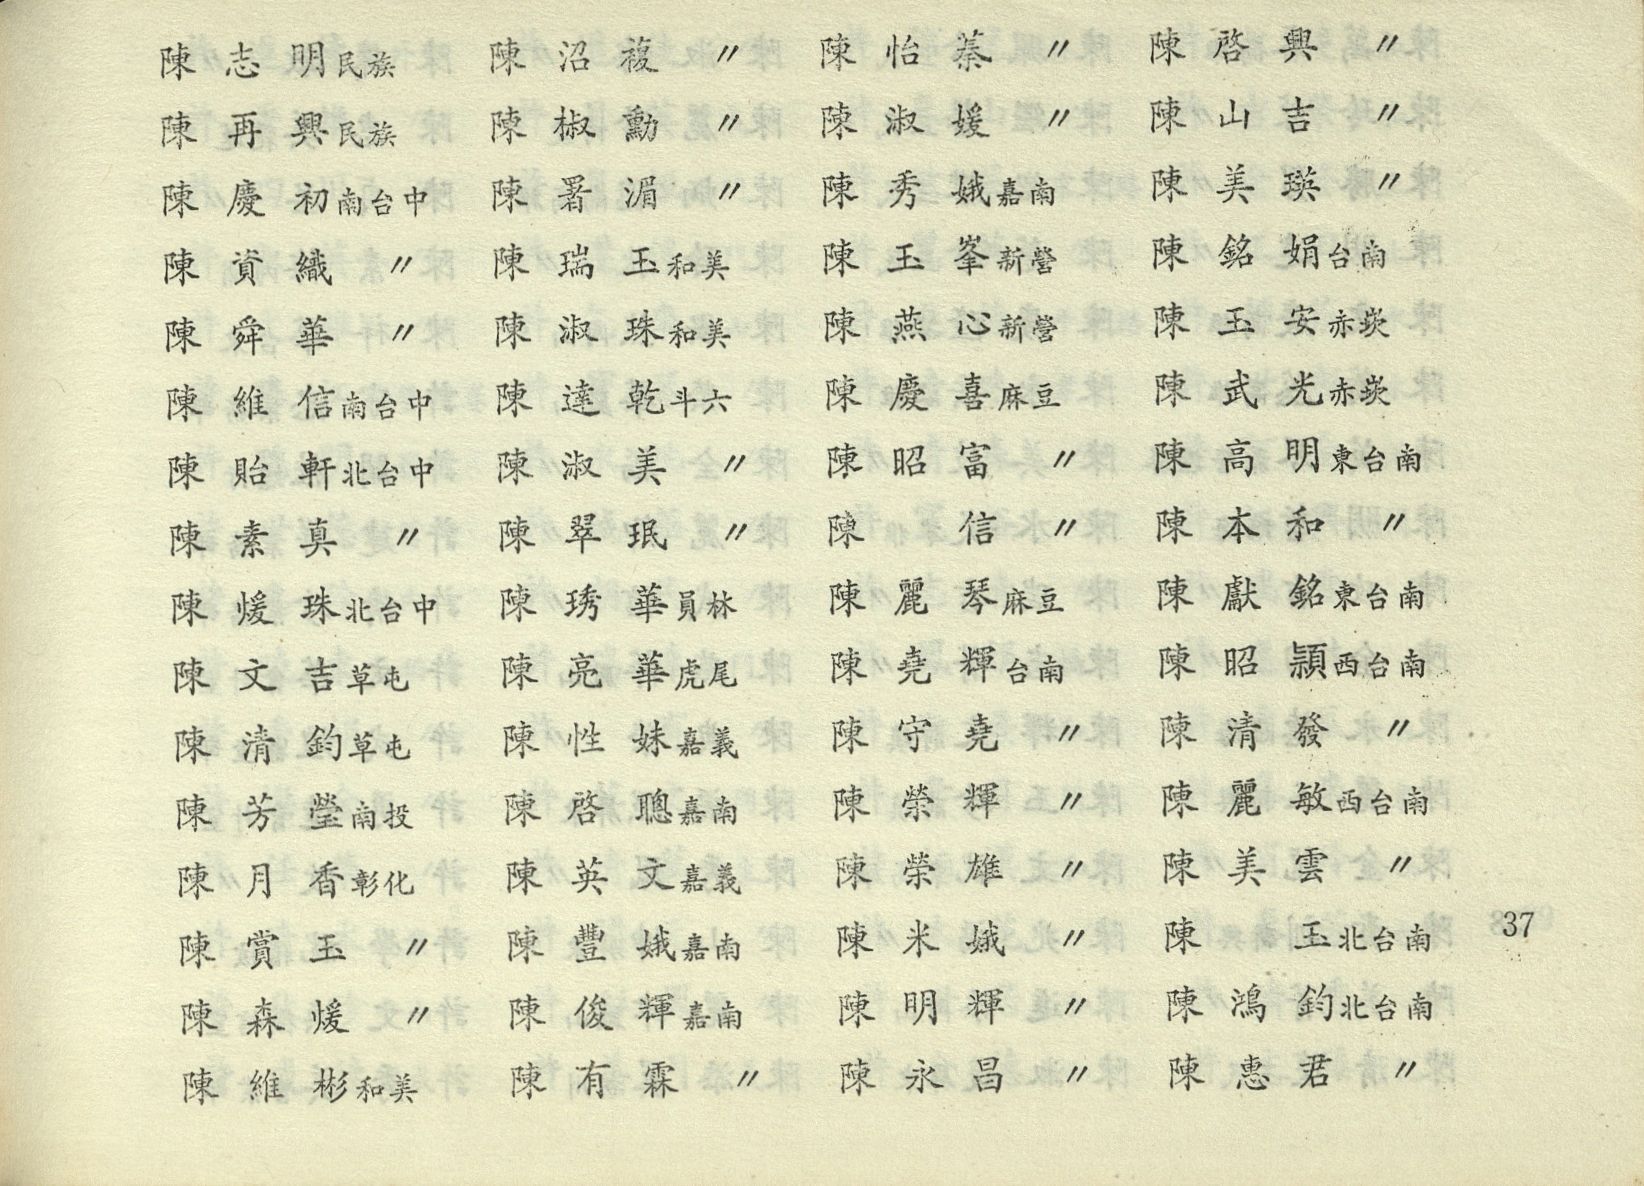 陳志明民族
陳再興民族
陳慶初南台中
陳資織〃
陳舜華〃
陳維信南台中
陳貽軒北台中
陳素真〃
陳煖珠北台中
陳文吉草屯
陳清鈞草屯
陳芳瑩南投
陳月香彰化
陳賞玉〃
陳森煖〃
陳維彬和美
陳沼複〃
陳椒勳〃
陳署湄〃
陳瑞玉和美
陳淑珠和美
陳達乾斗六
陳淑美〃
陳翠珉〃
陳琇華員林
陳亮華虎尾
陳性妹嘉義
陳啓聰嘉南
陳英文嘉義
陳豐娥嘉南
陳俊輝嘉南
陳有霖〃
陳怡蓁〃
陳淑媛〃
陳秀娥嘉南
陳玉峯新營
陳燕心新營
陳慶喜麻豆
陳昭富〃
陳信〃
陳麗琴麻豆
陳堯輝台南
陳守堯〃
陳榮輝〃
陳榮雄〃
陳米娥〃
陳明輝〃
陳永昌〃
陳啓興〃
陳山吉〃
陳美瑛〃
陳銘娟台南
陳玉安赤崁
陳武光赤崁
陳高明東台南
陳本和〃
陳獻銘東台南
陳昭頴西台南
陳清發〃
陳麗敏西台南
陳美雲〃
陳玉北台南
陳鴻鈞北台南
陳惠君〃
37